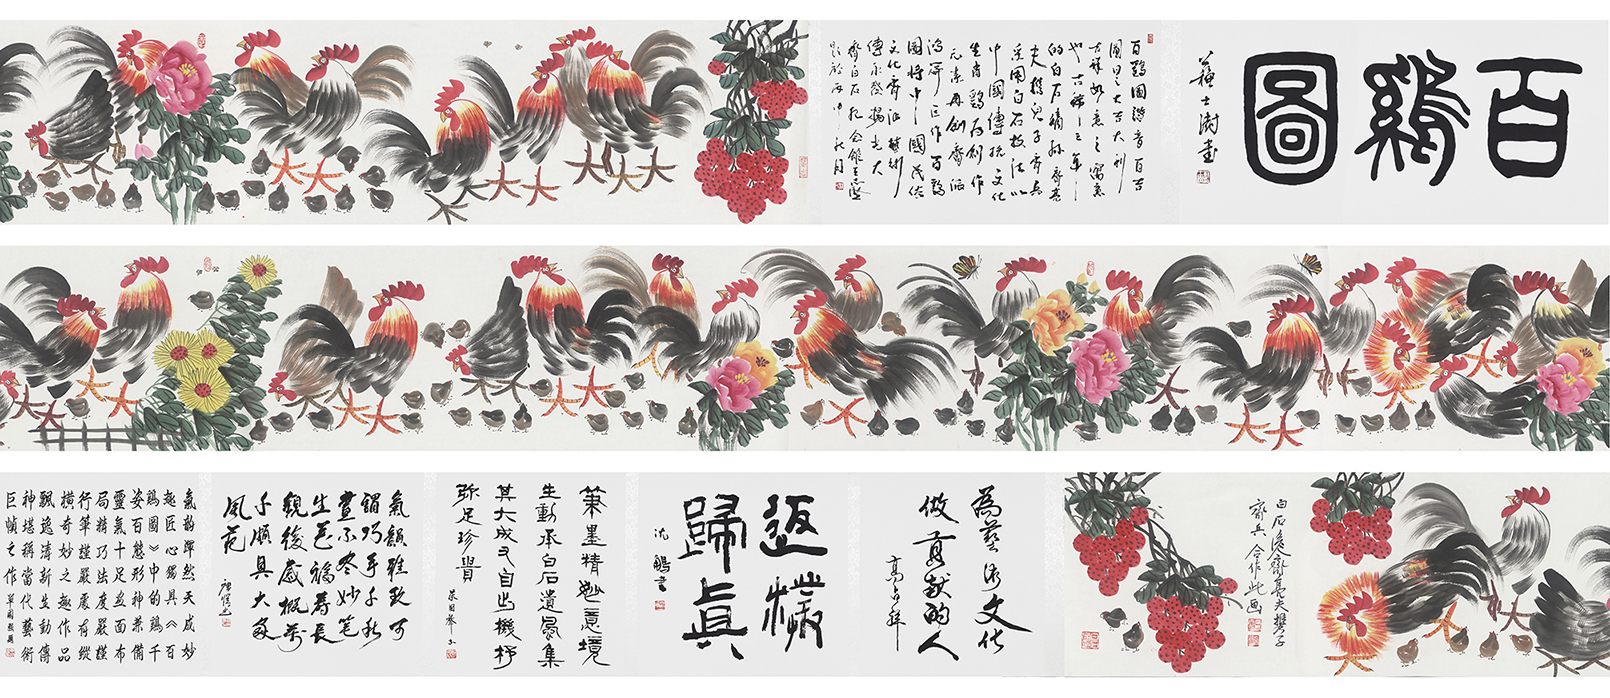 百鷄圖
蘇士澍書
百鷄圖諧音百吉
圖見之大吉大利
吉祥如意之寓意
也古稀之年
的白石嫡孫齊亮
夫攜兒子齊兵
采用白石技法以
中國傳統文化
生肖鷄為創作
元素再創齊派
鴻篇巨作百鷄
圖將中國民俗
文化齊派藝術
傳承發揚光大
齊白石紀念館王
題於丙申秋月
白石後裔齊亮夫攜子
齊兵合作此画
為藝術文化
做貢献的人
高占祥
返樸
歸真
沈鵬書
筆墨精妙意境
生動承白石遺風集
其大成又自出機杼
弥足珍貴
氣韻雅致可
謂巧手千秋
畫不尽妙笔
生花福壽長
觀後感概萬
千頗具大家
風范
氣韵渾然天成妙
趣匠心獨具《百
鷄圖》中的鷄千
姿百態形神兼備
靈氣十足畫面布
局精巧法度嚴謹
行筆謹嚴處有縱
橫奇妙之趣作品
飄逸清新生動傳
神堪稱當代藝術
巨幀之作 單國强題